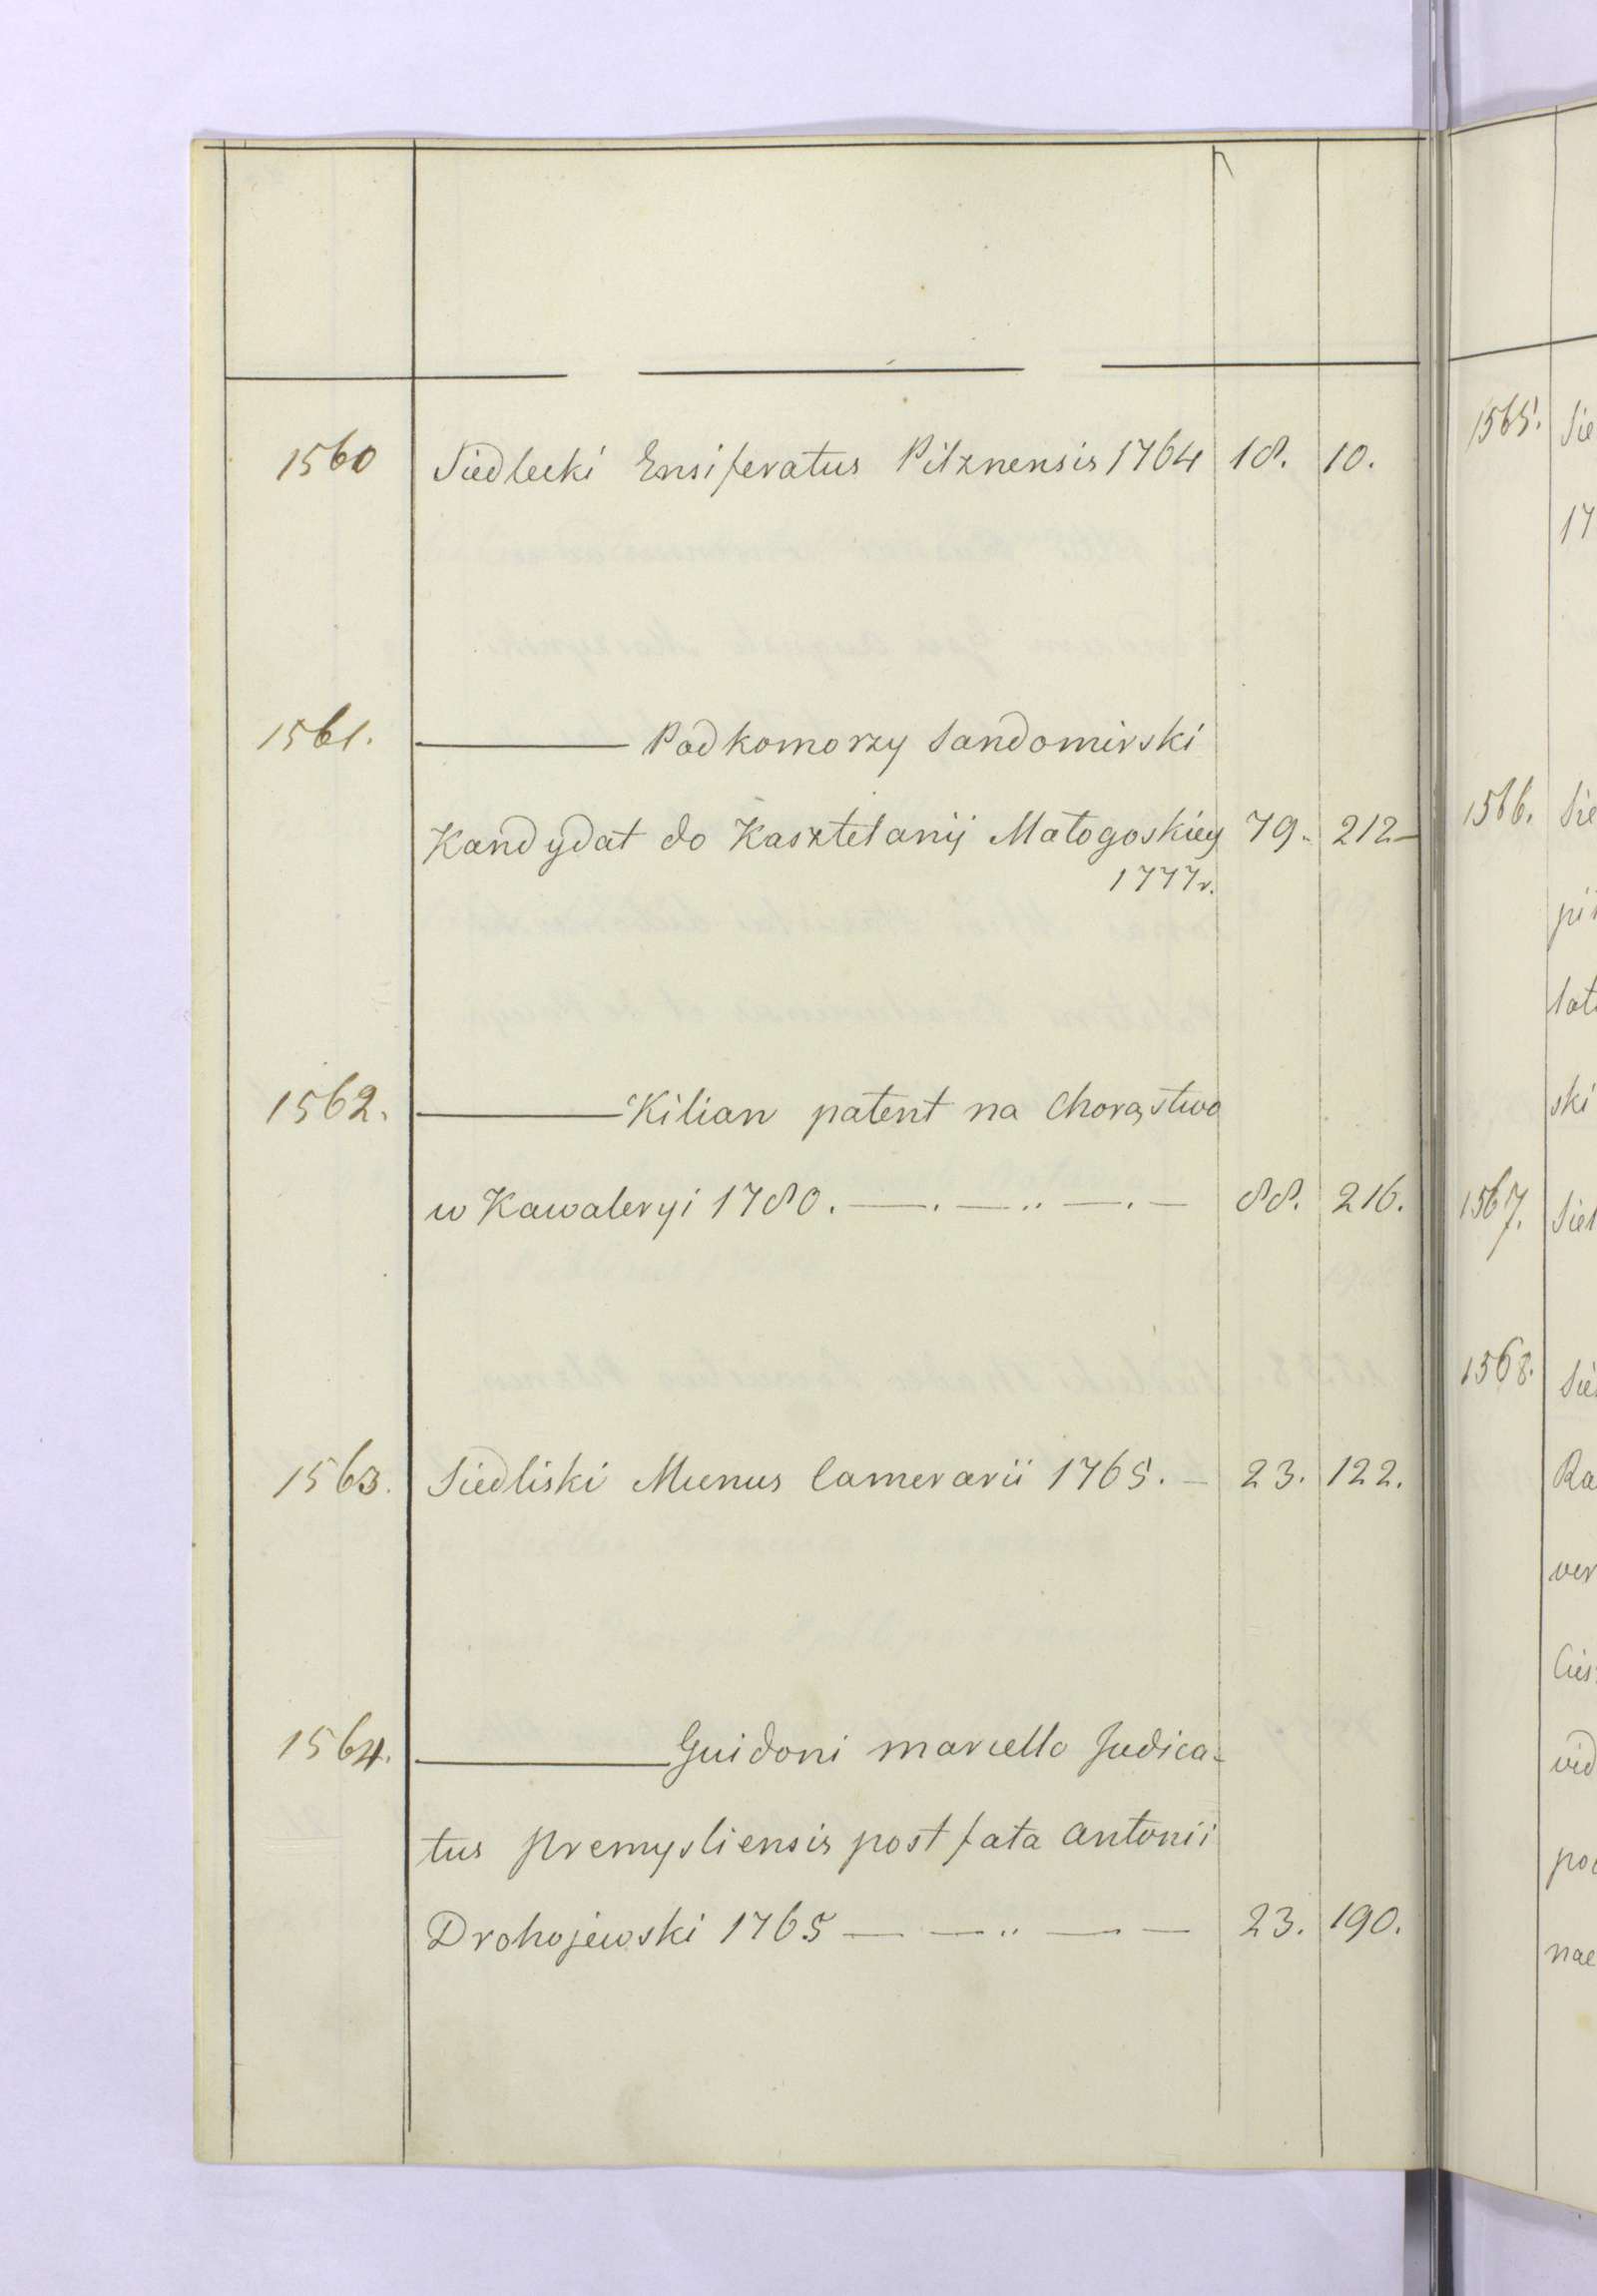 1560 Siedlecki Ensiferatus Pilznensis 1764 18. 10.
1561. ——— Podkomorzy Sandomirski
Kandydat do Kasztelanij Małogoskiey 79. 212–
1777r.
1562. ——— Kilian patent na Chorąstwo
w Kawaleryi 1780. —.—..—.— 88. 216.
1563. Siedliski Munus Camerarii 1765. – 23. 122.
1564. ——— Guidoni marcello Judica-
tus Premysliensis post fata Antonii
Drohojewski 1765 — —.. — — 23. 190.
1565. Sie
17
1566. Sie
lat
ski
1567. Sie
1568. Sie
Ra
ver
Cies
vid
poc
nae